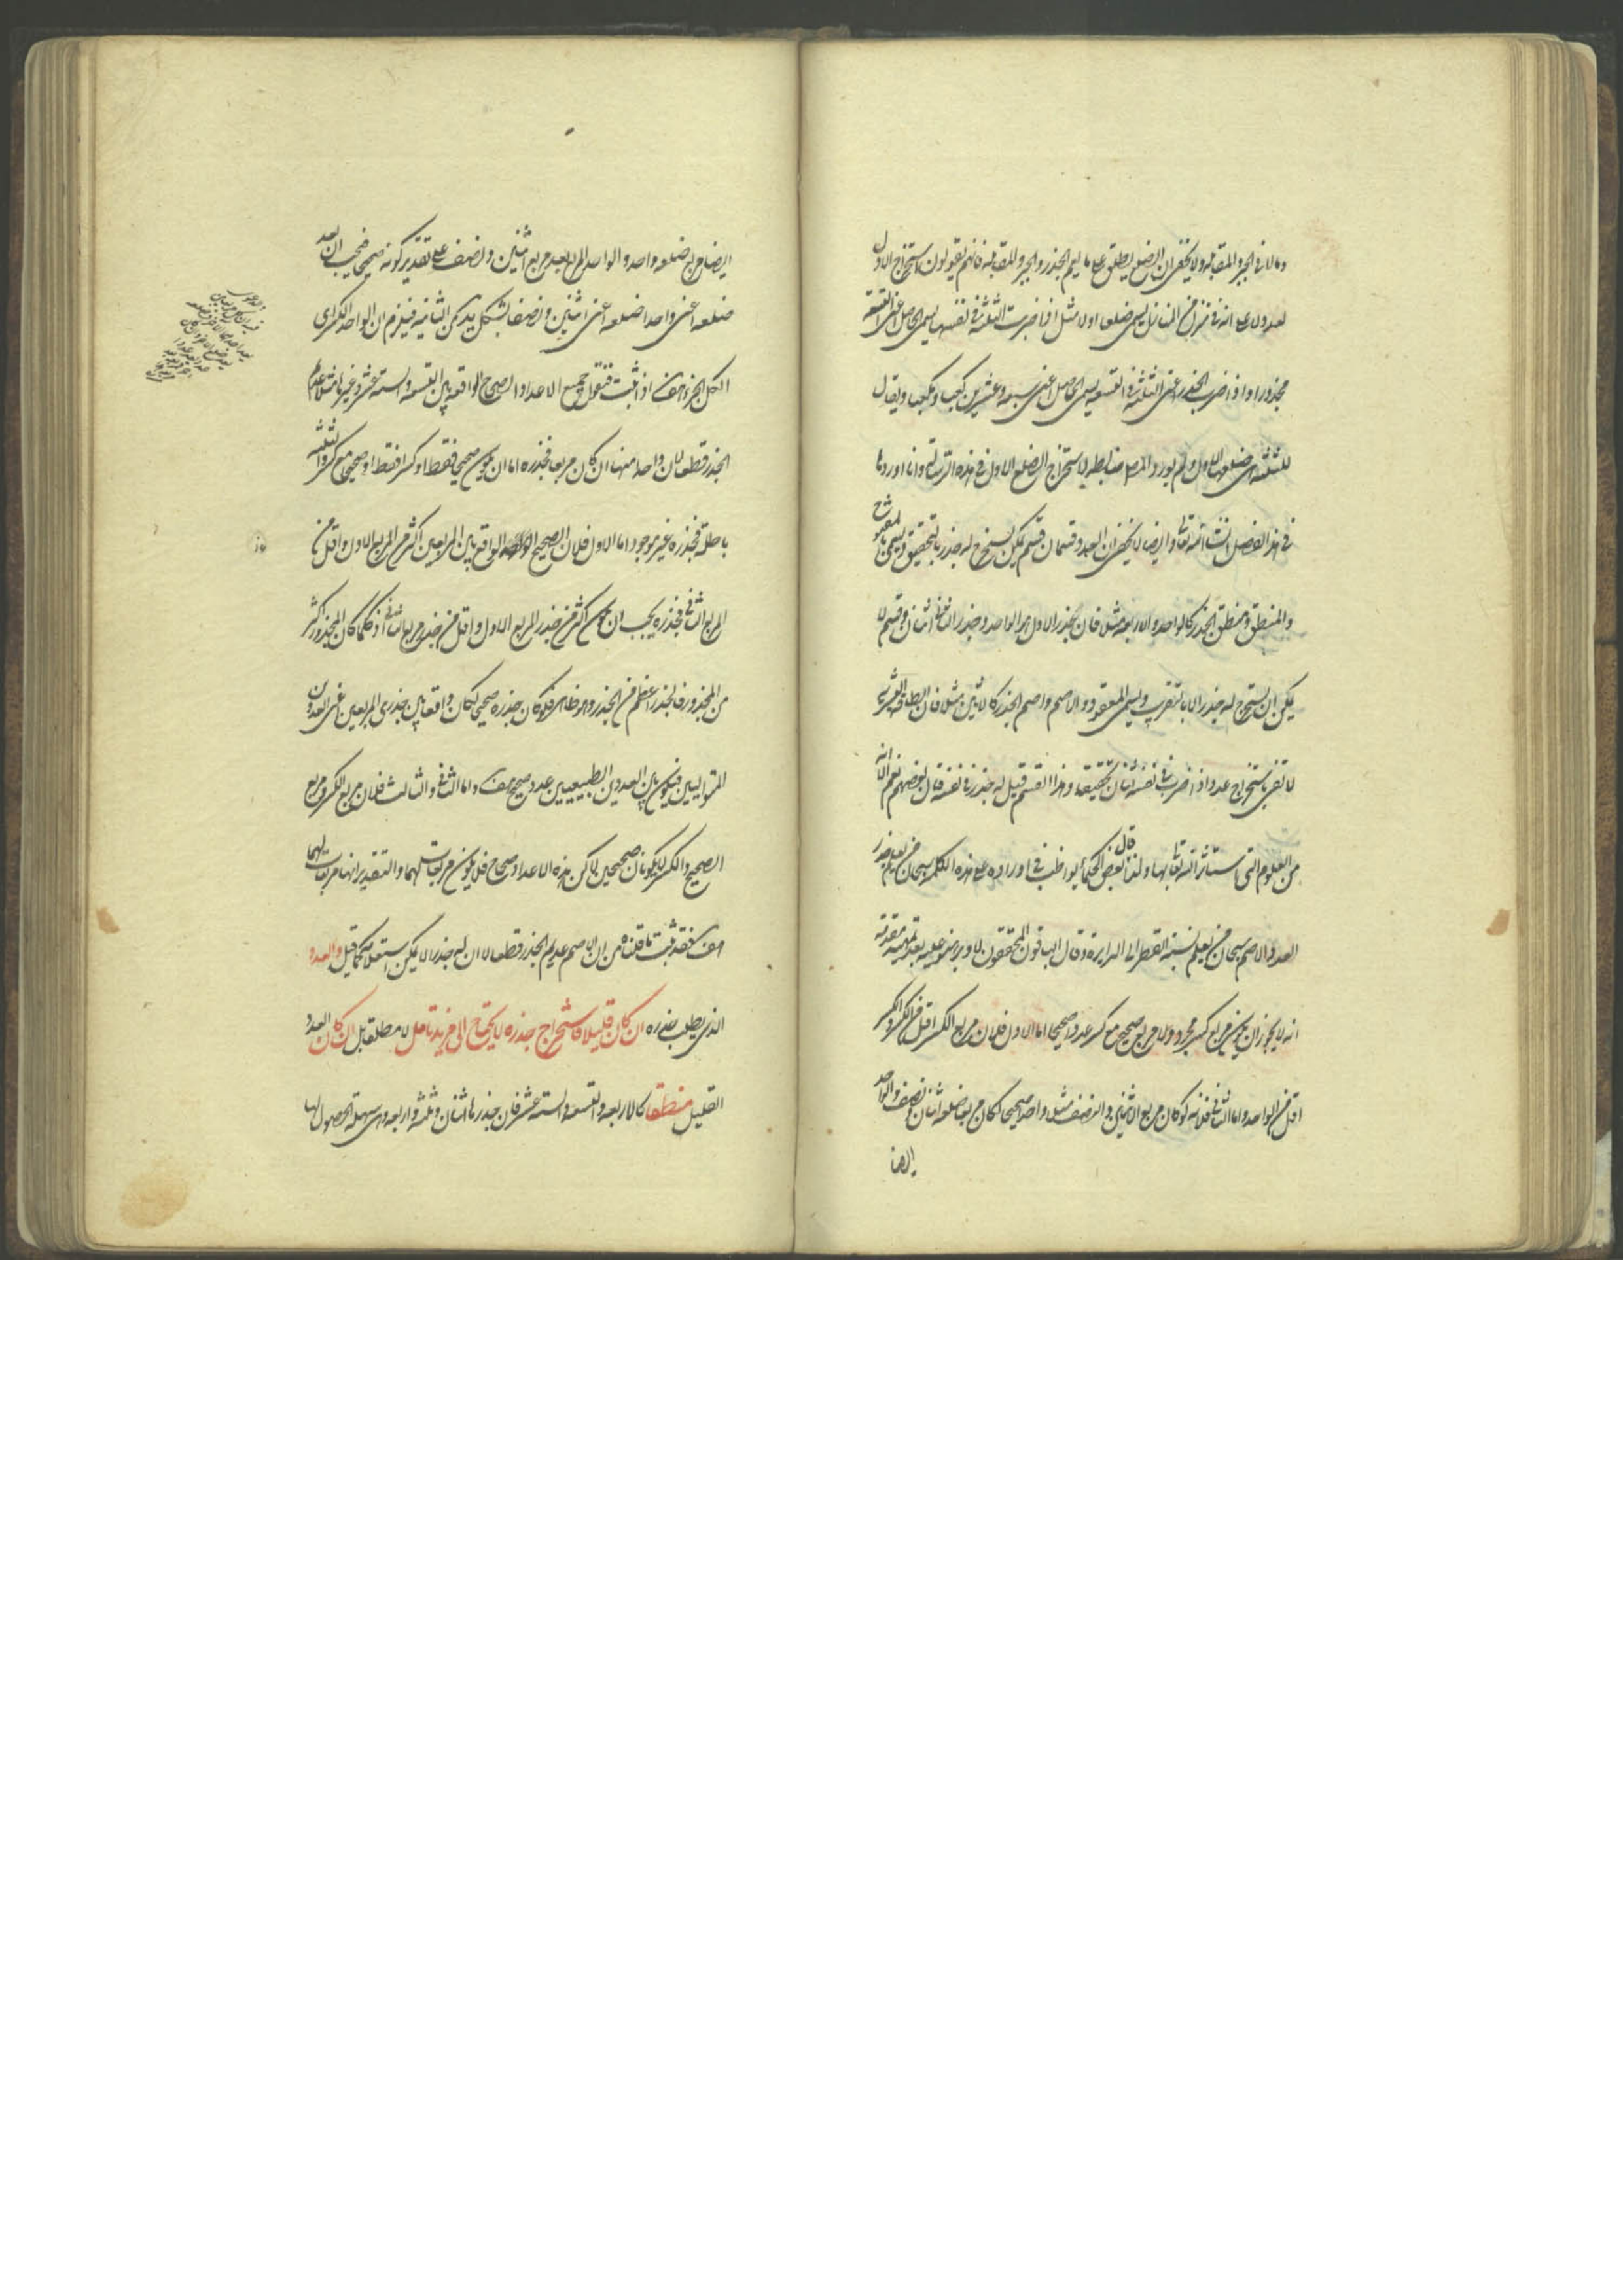 ومالا فى الجبر والمقابلة ولا يخفى ان الضلع يطلق على ما يعم الجذر والجبر والمقابلة فانهم يقولون استخراج الاول
لعدد لا على انه فى منزل من المنازل يسمى ضلعا اولا مثلا اذا ضربت الثلثة فى نفسها يسمى الحاصل اعنى التسعة
مجذورا واذا ضرب الجذر اعنى الثلثة فى التسعة يسمى الحاصل اعنى سبعة وعشرين كعبا ومكعبا ويقال
للثلثة ضلعها الاول ولم يورد المص ضابطه لاستخراج الضلع الاول فى هذه الرسالة وانا اوردها
فى هذا الفصل انشاء الله تعالى وايضا لا يخفى ان العدد قسمان قسم يمكن ان يستخرج له جذر بالتحقيق ويسمى بالمفتوح
والمنطق ومنطق الجذر كالواحد والاربعة مثلا فان جذر الاول هو الواحد وجذر الثانى اثنان وقسم لا
يمكن ان يستخرج له جذر الا بالتقريب ويسمى المعقود والاصم واصم الجذر كالاثنين مثلا فان الطاقة البشرية
لا تفى باستخراج عدد اذا ضرب فى نفسه اثنان تحقيقا وهذا القسم قيل له جذر فى نفسه قال بعضهم نعم الا انه
من العلوم التى استاثر الله تعالى بها ولذا قال بعض الحكماء يواظب فى اوراده على هذه الكلمة سبحان من يعلم جذر
العدد الاصم سبحان من يعلم نسبة القطر الى الدايرة وقال الباقون المحققون لا وبرهنوا عليه بعد تمهيد مقدمة
انه لا يجوز ان يكون مربع كسر مجرد ولا مربع صحيح مع كسر عددا صحيحا اما الاول فلان مربع الكسر اقل من الكسر والكسر
اقل من الواحد واما الثانى فلانه لو كان مربع الاثنين والنصف مثلا واحدا صحيحا لكان مربعا ضلعه اثنان ونصف والواحد
ايضا
ايضا مربع ضلعه واحد والواحد المربع يعد مربع اثنين ونصف على تقدير كونه صحيحا فيجب ان يعد
ضلعه اعنى واحدا ضلعه اعنى اثنين ونصفا بشكل يد من الثامنة فيلزم ان الواحد الكسر اى
الكل الجزء هف اذا ثبت فنقول جميع الاعداد الصحاح الواقعة بين التسعة والستة عشر وغيرها مثلا عادم
الجذر قطعا لان واحدا منها ان كان مربعا فجذره اما ان يكون صحيحا فقط او كسرا فقط او صحيحا مع كسر والثلثة
باطلة فجذره غير موجود اما الاول فلان الصحيح الواقع بين المربعين اكثر من المربع الاول واقل من
المربع الثانى فجذره يجب ان يكون اكثر من جذر المربع الاول واقل من جذر مربع الثانى اذ كلما كان المجذور اكثر
من المجذور فالجذر اعظم من الجذر وهو ظاهر فلو كان جذره صحيحا لكان واقعا بين جذرى المربعين اعنى العددين
المتواليين فيكون بين العددين الطبيعيين عدد صحيح هف واما الثانى والثالث فلان مربع الكسر ومربع
الصحيح والكسر لا يكونان صحيحين لكن هذه الاعداد صحاح فلا يكون مربعات لهما والتقدير انها مربعات لهما
هف فقد ثبت ما قلناه من ان الاصم عديم الجذر قطعا لا ان له جذرا لا يمكن استعلامه كما قيل والعدد
الذى يطلب جذره ان كان قليلا فاستخراج جذره لا يحتاج الى مزيد تامل لا مطلقا بل ان كان العدد
القليل منطقا كالاربعة والتسعة والستة عشر فان جذرها اثنان وثلثة واربعة وهى سهلة الحصول لها